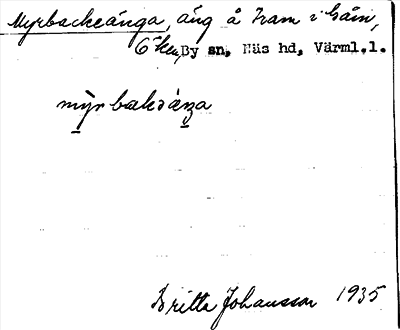 Myrbackeänga, äng å Fram i Gåin,
Öken, By sn, Näs hd, Värml.l.
mỳrbakəǽŋa
Britta Johansson 1935